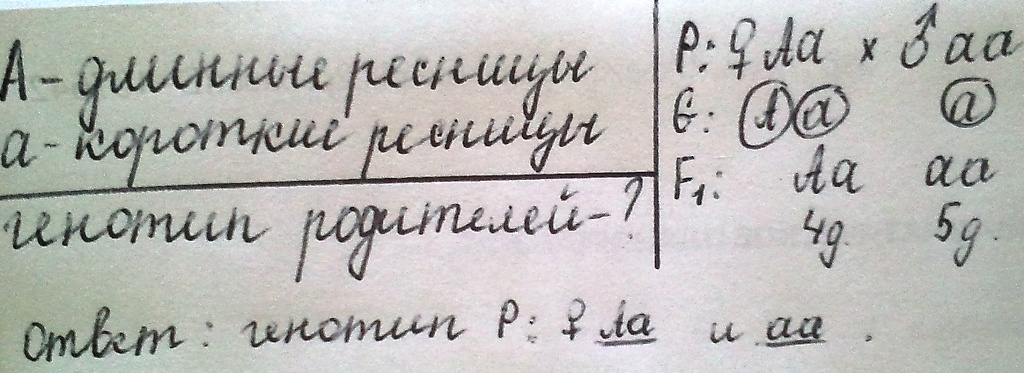 А - длинные ресницы
а - короткие ресницы
генотип родителей - ?
P: ♀ Аа × ♂ аа
G: А а а
F₁: Аа аа
4д. 5д.
Ответ: генотип P: ♀ Аа и аа.